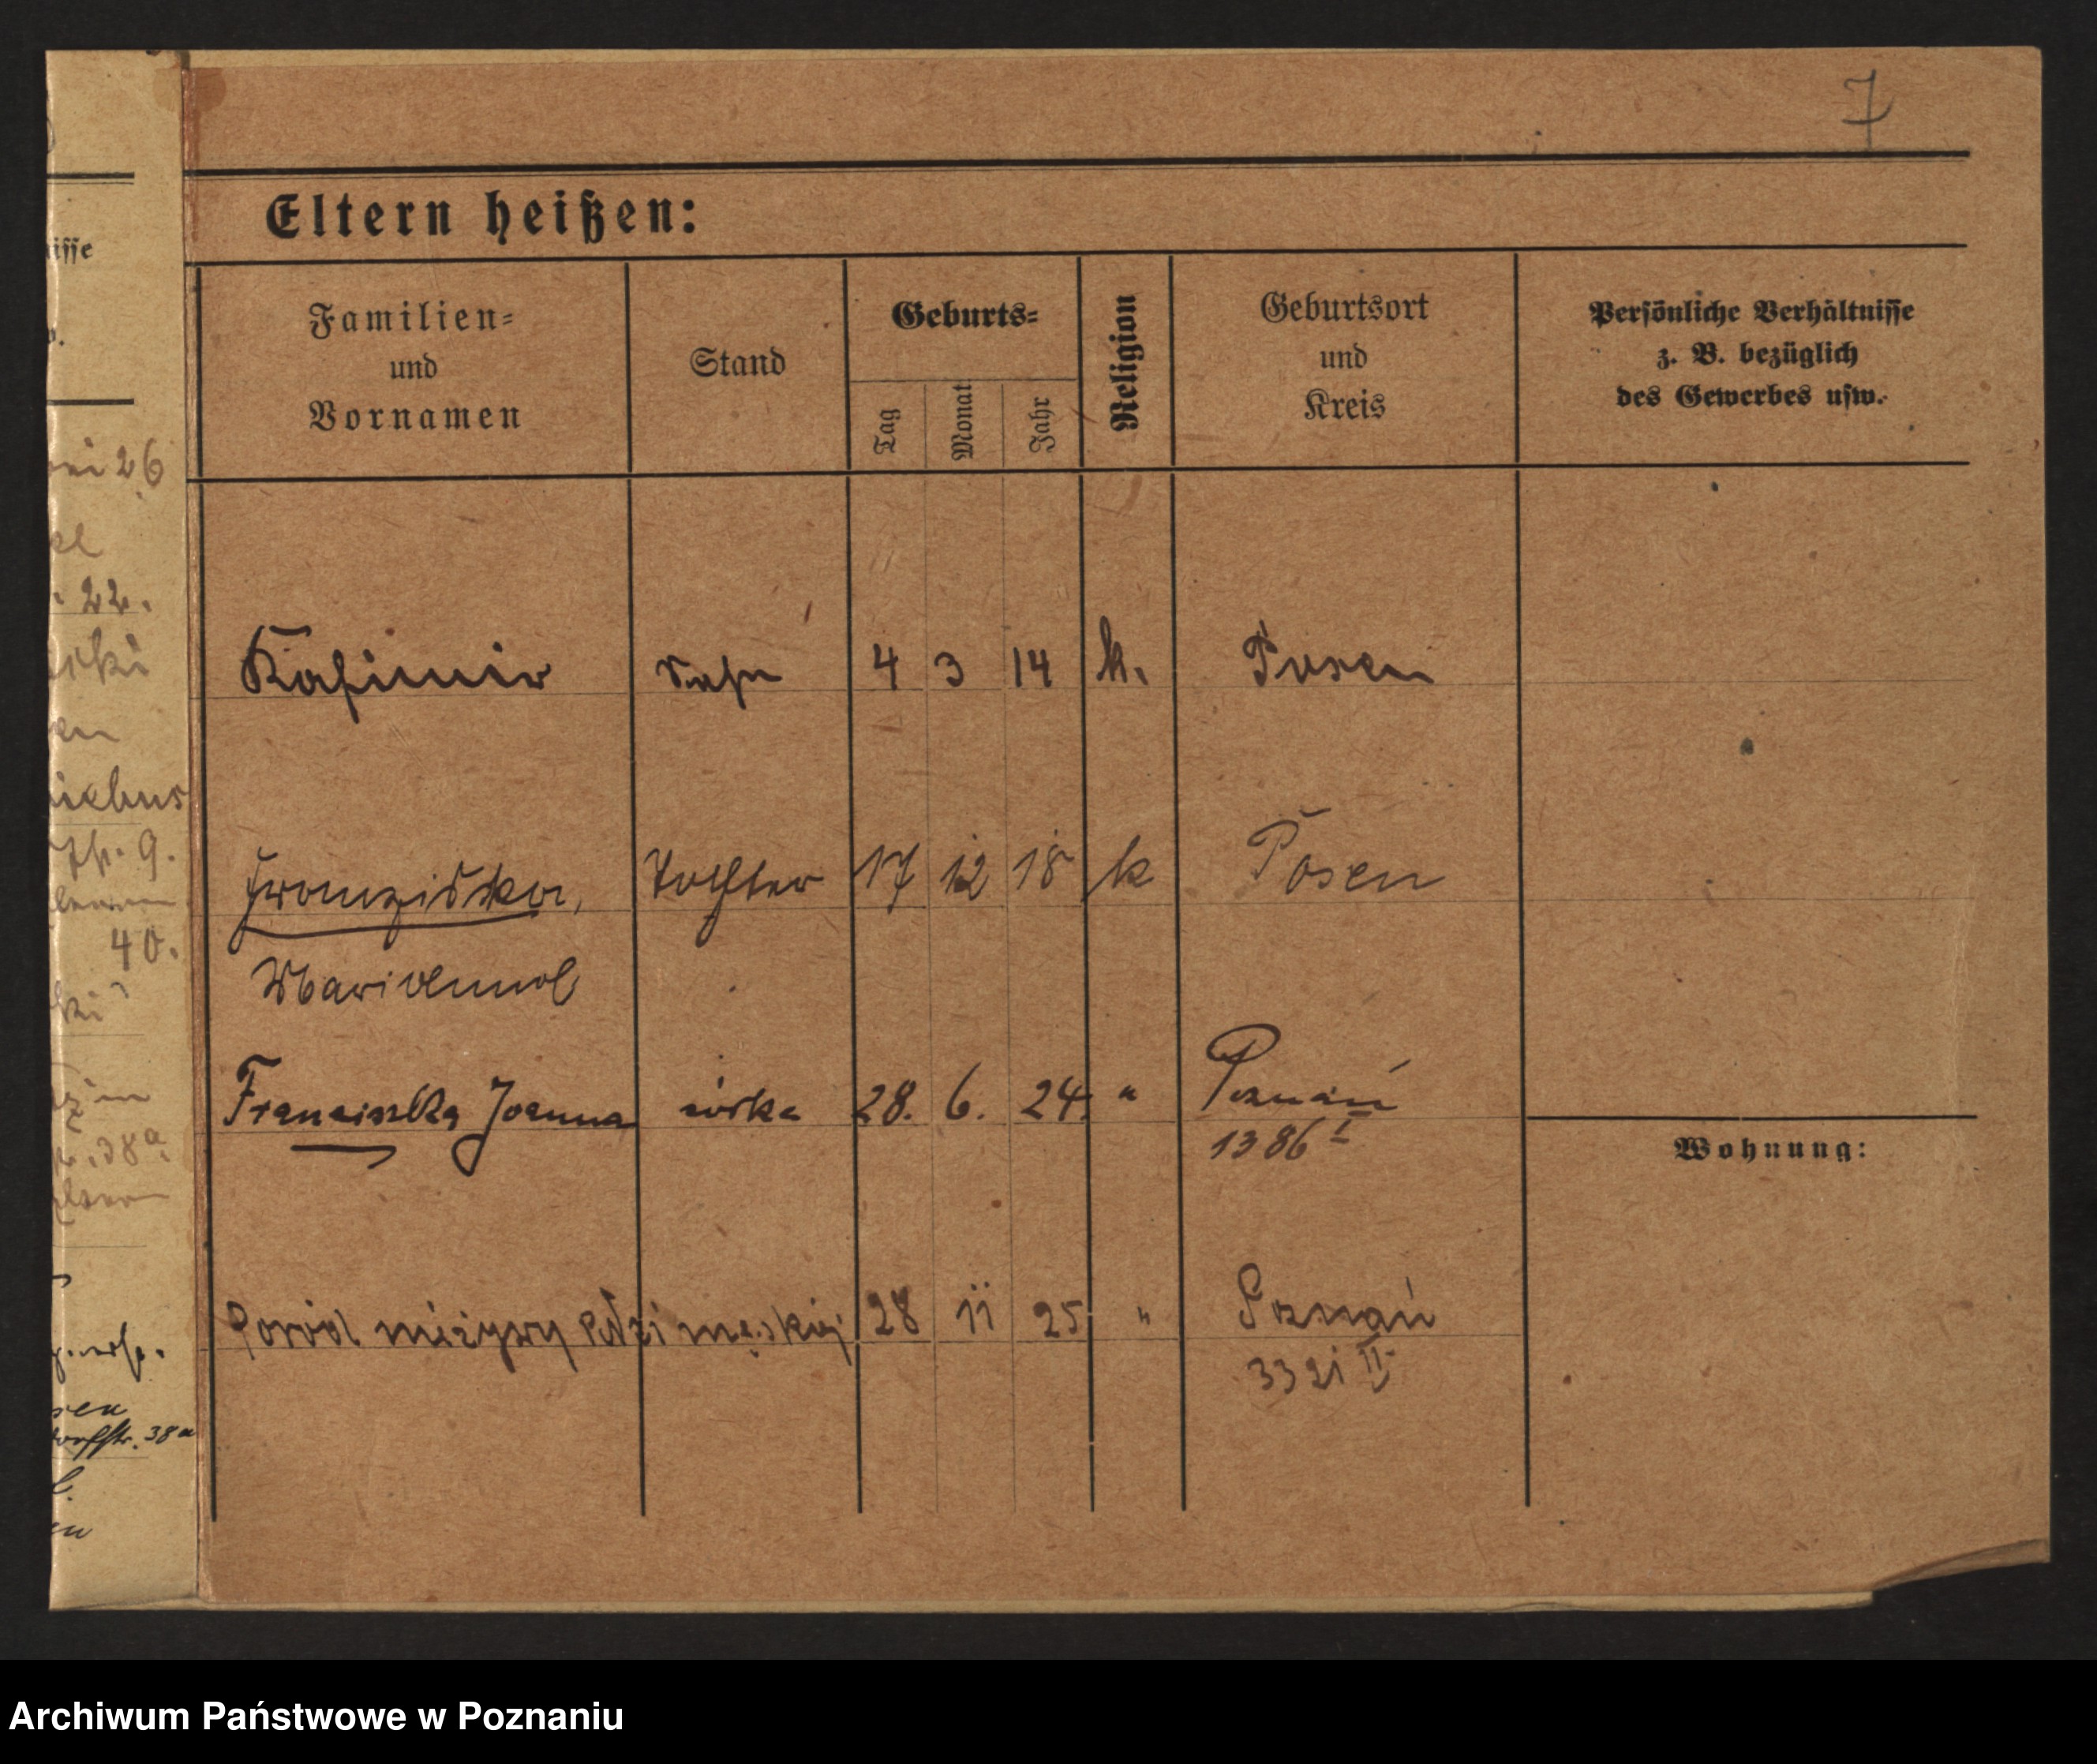 7
Eltern heißen:
isse
Familien-
und
Vornamen
Stand
Geburts-
Tag
Monat
Jahr
Religion
Geburtsort
und
Kreis
Persönliche Verhältnisse
z. B. bezüglich
des Gewerbes usw.
26
22.
Kasimir Sohn 4 3 14 k. Posen
9.
Franziska, Tochter 17 12 18 k Posen
40.
Franciszka Joanna córka 28. 6. 24. " Poznań
1386 I
38a
Wohnung:
Poród nieżywy płci męskiej 28 11 25 " Poznań
3321 II
38a
Archiwum Państwowe w Poznaniu